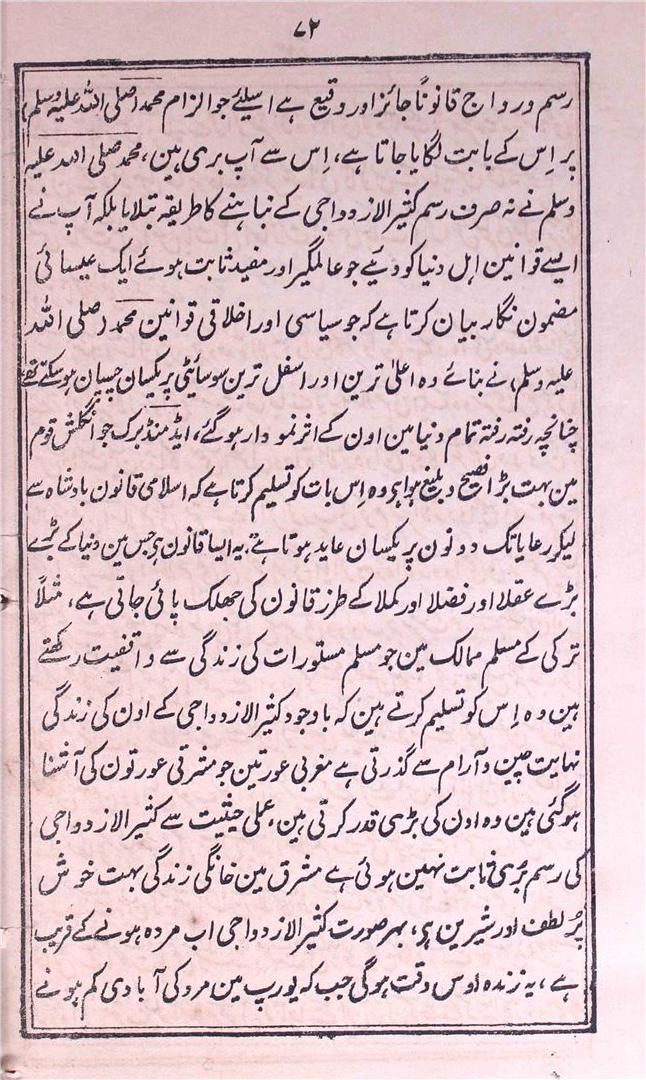 ۷۲
رسم ورواج قانوناً جائز اور وقیع ہے اسلئے جو الزام محمد (صلی اللہ علیہ وسلم)
پر اِس کے بابت لگایا جاتا ہے، اِس سے آپ بری ہین، محمد صلی اللہ علیہ
وسلم نے نہ صرف رسم کثیر الازدواجی کے نباہنے کا طریقہ بتلایا بلکہ آپ نے
ایسے قوانین اہل دنیا کو دئیے جو عالمگیر اور مفید ثابت ہوئے ایک عیسائی
مضمون نگار بیان کرتا ہے کہ جو سیاسی اور اخلاقی قوانین محمد (صلی اللہ
علیہ وسلم) نے بنائے وہ اعلیٰ ترین اور اسفل ترین سوسائیٹی پر یکسان چسپان ہو سکتے تھے
چنانچہ رفتہ رفتہ تمام دنیا مین اون کے اثر نمودار ہو گئے، ایڈمنڈ برک جو انگلش قوم
مین بہت بڑا فصیح و بلیغ ہوا ہی وہ اِس بات کو تسلیم کرتا ہے کہ اسلامی قانون بادشاہ سے
لیکر رعایا تک دونون پر یکسان عاید ہوتا ہے، یہ ایسا قانون ہی جس مین دنیا کے بڑے
بڑے عقلا اور فضلا اور کملا کے طرز قانون کی جھلک پائی جاتی ہے، مثلاً
ترکی کے مسلم ممالک مین جو مسلم مستورات کی زندگی سے واقفیت رکھتے
ہین وہ اِس کو تسلیم کرتے ہین کہ باوجود کثیر الازدواجی کے اون کی زندگی
نہایت چین و آرام سے گذرتی ہے مغربی عورتین جو مشرقی عورتون کی آشنا
ہو گئی ہین وہ اون کی بڑی قدر کرتی ہین، عملی حیثیت سے کثیر الازدواجی
کی رسم بُری ثابت نہین ہوئی ہے مشرق مین خانگی زندگی بہت خوش
پُر لطف اور شیرین ہی، بہر صورت کثیر الازدواجی اب مردہ ہونے کے قریب
ہے، یہ زندہ اوس وقت ہوگی جب کہ یورپ مین مرد کی آبادی کم ہونے